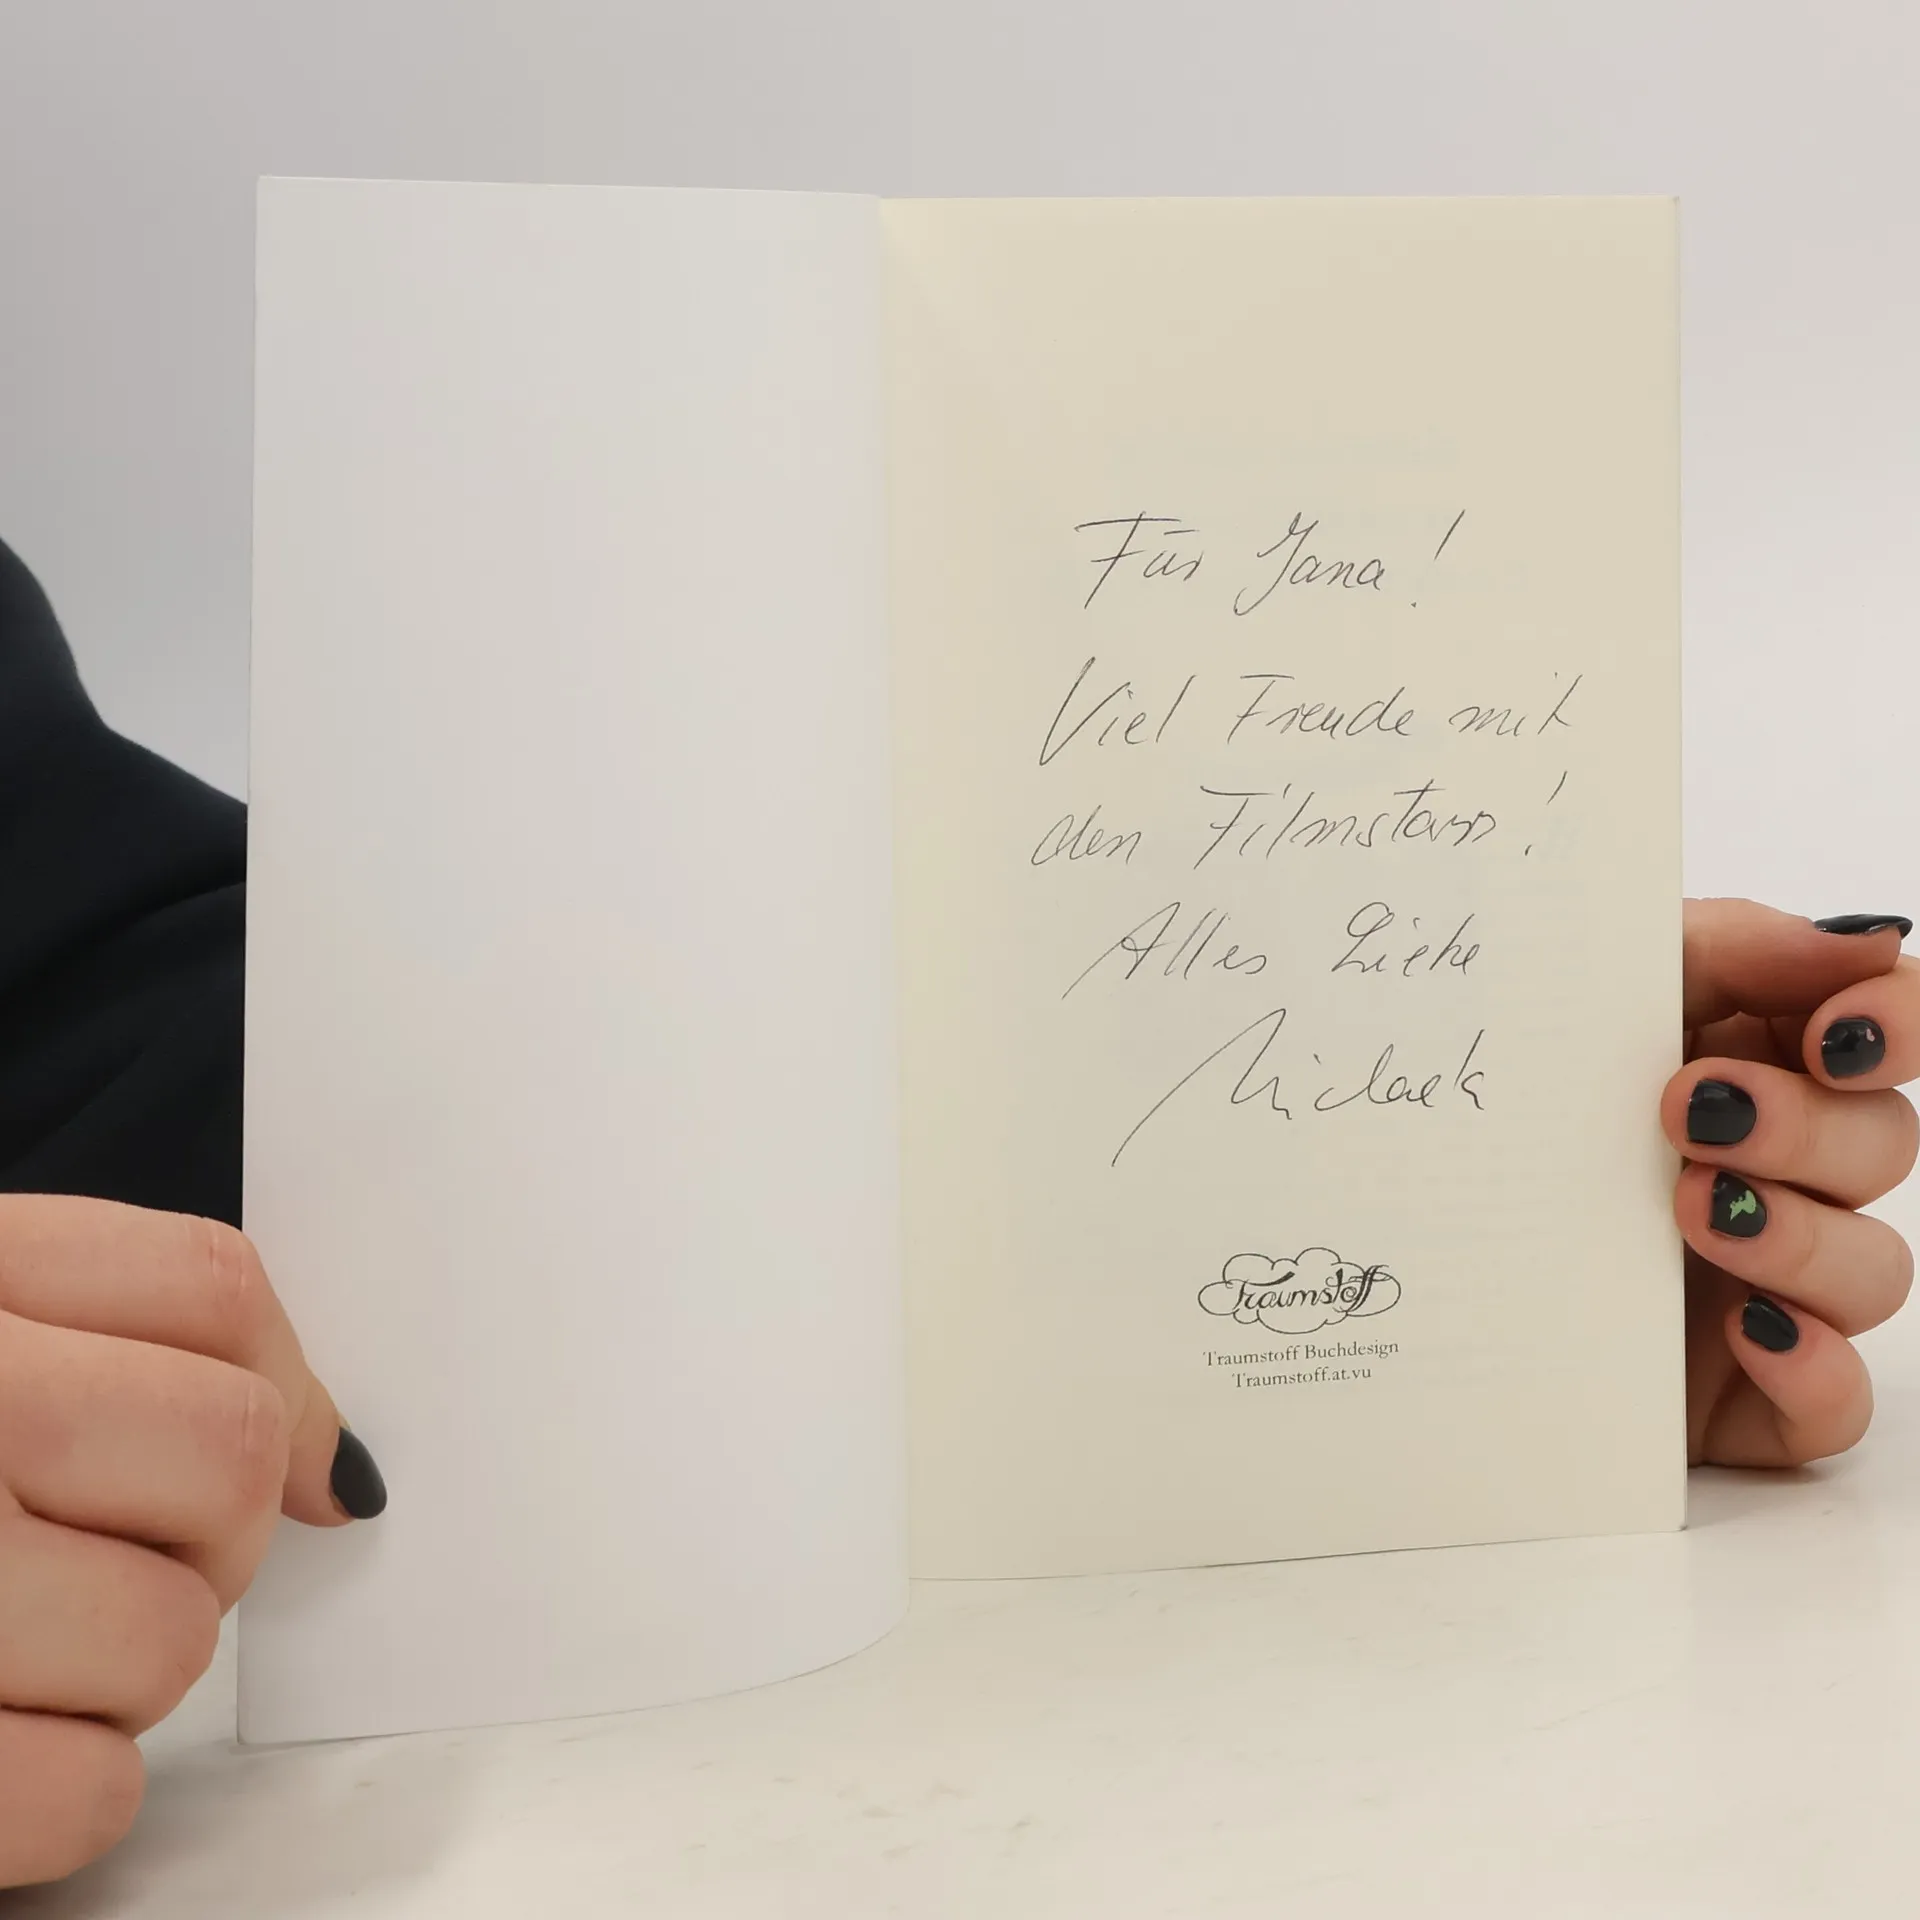 Für Jana!
Viel Freude mit
den Filmstars!
Alles Liebe
Michaela
Traumstoff
Traumstoff Buchdesign
Traumstoff.at.vu